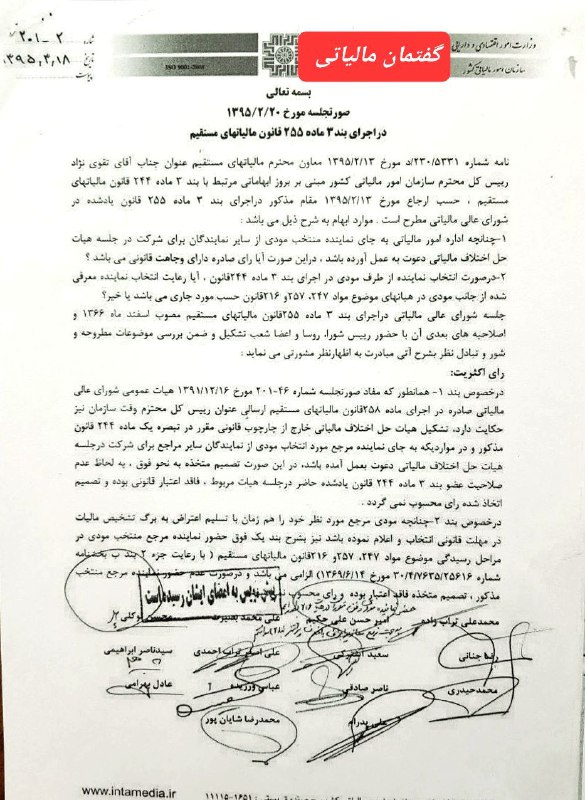 شماره ۲-۲۰۱
تاریخ ۱۳۹۵,۳,۱۸
پیوست
وزارت امور اقتصادی و دارایی
سازمان امور مالیاتی کشور
ISO 9001-2008
گفتمان مالیاتی
بسمه تعالی
صورتجلسه مورخ ۱۳۹۵/۲/۲۰
در اجرای بند ۳ ماده ۲۵۵ قانون مالیاتهای مستقیم
نامه شماره ۲۳۰/۵۳۳۱/د مورخ ۱۳۹۵/۲/۱۳ معاون محترم مالیاتهای مستقیم عنوان جناب آقای تقوی نژاد
رییس کل محترم سازمان امور مالیاتی کشور مبنی بر بروز ابهاماتی مرتبط با بند ۳ ماده ۲۴۴ قانون مالیاتهای
مستقیم ، حسب ارجاع مورخ ۱۳۹۵/۲/۱۳ مقام مذکور دراجرای بند ۳ ماده ۲۵۵ قانون یادشده در
شورای عالی مالیاتی مطرح است . موارد ابهام به شرح ذیل می باشد :
۱-چنانچه اداره امور مالیاتی به جای نماینده منتخب مودی از سایر نمایندگان برای شرکت در جلسه هیات
حل اختلاف مالیاتی دعوت به عمل آورده باشد ، دراین صورت آیا رای صادره دارای وجاهت قانونی می باشد ؟
۲-درصورت انتخاب نماینده از طرف مودی در اجرای بند ۳ ماده ۲۴۴قانون ، آیا رعایت انتخاب نماینده معرفی
شده از جانب مودی در هیاتهای موضوع مواد ۲۴۷، ۲۵۷و ۲۱۶قانون حسب مورد جاری می باشد یا خیر؟
جلسه شورای عالی مالیاتی دراجرای بند ۳ ماده ۲۵۵قانون مالیاتهای مستقیم مصوب اسفند ماه ۱۳۶۶ و
اصلاحیه های بعدی آن با حضور رییس شورا، روسا و اعضا شعب تشکیل و ضمن بررسی موضوعات مطروحه و
شور و تبادل نظر بشرح آتی مبادرت به اظهارنظر مشورتی می نماید :
رای اکثریت:
درخصوص بند ۱- همانطور که مفاد صورتجلسه شماره ۴۶-۲۰۱ مورخ ۱۳۹۱/۱۲/۱۶ هیات عمومی شورای عالی
مالیاتی صادره در اجرای ماده ۲۵۸قانون مالیاتهای مستقیم ارسالی عنوان رییس کل محترم وقت سازمان نیز
حکایت دارد، تشکیل هیات حل اختلاف مالیاتی خارج از چارچوب قانونی مقرر در تبصره یک ماده ۲۴۴ قانون
مذکور و در مواردیکه به جای نماینده مرجع مورد انتخاب مودی از نمایندگان سایر مراجع برای شرکت درجلسه
هیات حل اختلاف مالیاتی دعوت بعمل آمده باشد، در این صورت تصمیم متخذه به نحو فوق ، به لحاظ عدم
صلاحیت عضو بند ۳ ماده ۲۴۴ قانون یادشده حاضر درجلسه هیات مربوط ، فاقد اعتبار قانونی بوده و تصمیم
اتخاذ شده رای محسوب نمی گردد .
درخصوص بند ۲-چنانچه مودی مرجع مورد نظر خود را هم زمان با تسلیم اعتراض به برگ تشخیص مالیات
در مهلت قانونی انتخاب و اعلام نموده باشد نیز بشرح بند یک فوق حضور نماینده مرجع منتخب مودی در
مراحل رسیدگی موضوع مواد ۲۴۷، ۲۵۷و ۲۱۶قانون مالیاتهای مستقیم ( با رعایت جزء ۲ بند ب بخشنامه
شماره ۳۰/۴/۷۶۳۵/۲۵۶۱۶ مورخ ۱۳۶۹/۶/۱۴) الزامی می باشد و درصورت عدم حضور نماینده مرجع منتخب
مذکور ، تصمیم متخذه فاقد اعتبار بوده و رای محسوب
پیش نویس به امضای ایشان رسیده است
محمدعلی تراب زاده امیر حسن علی حکیم علی محمد محسن
رضا جنانی سعید علی اصغر تراب احمدی سیدناصر ابراهیمی
محمدحیدری ناصر صادقی عباس ورزیده عادل بهرامی
علی پدرام محمدرضا شایان پور
www.intamedia.ir
۱۱۱۱۵-۱۶۵۱